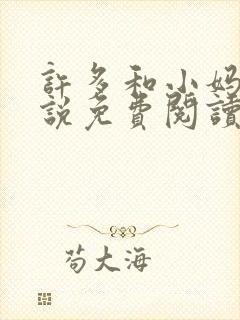 許多和小妈
説免費閱讀
苟大海